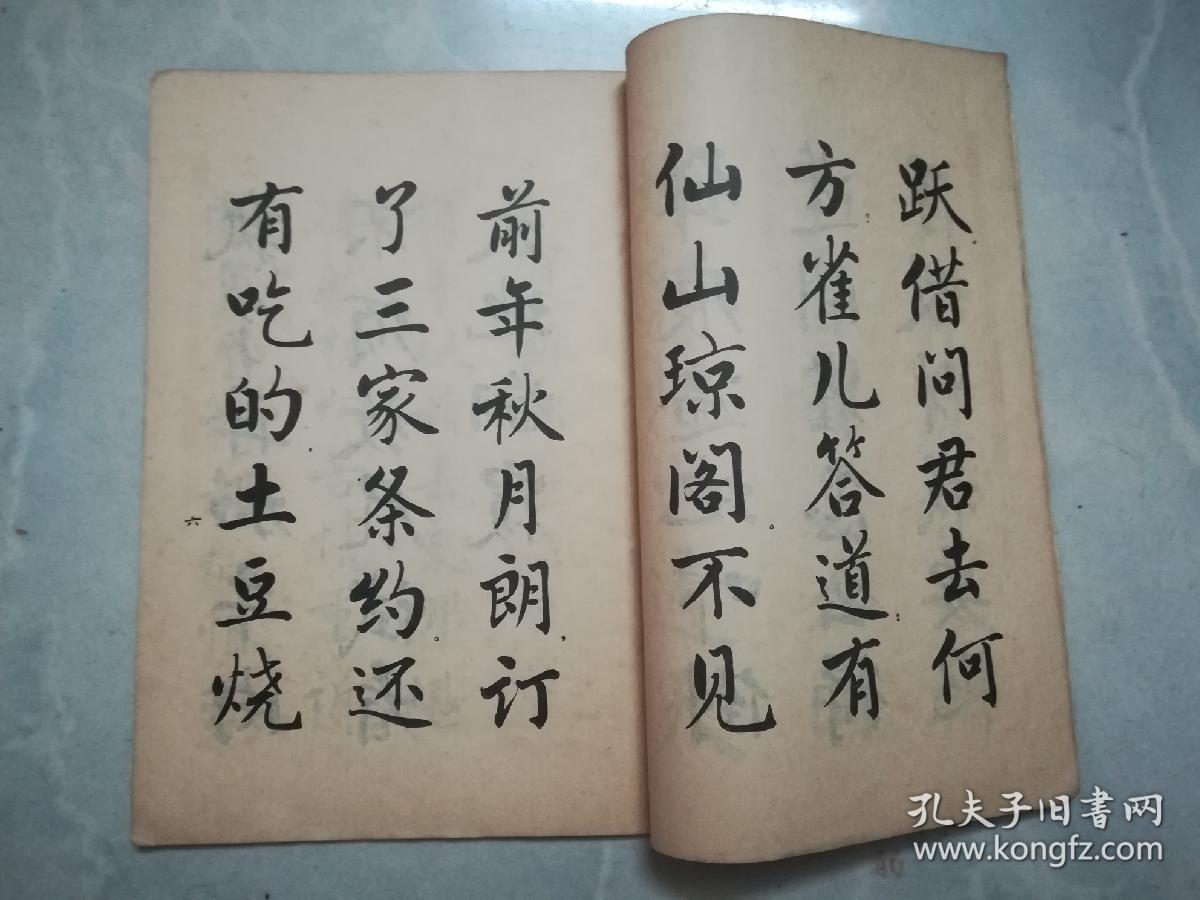 跃借问君去何
方。雀儿答道：有
仙山琼阁。不见
前年秋月朗，订
了三家条约。还
有吃的，土豆烧
六
孔夫子旧书网
www.kongfz.com